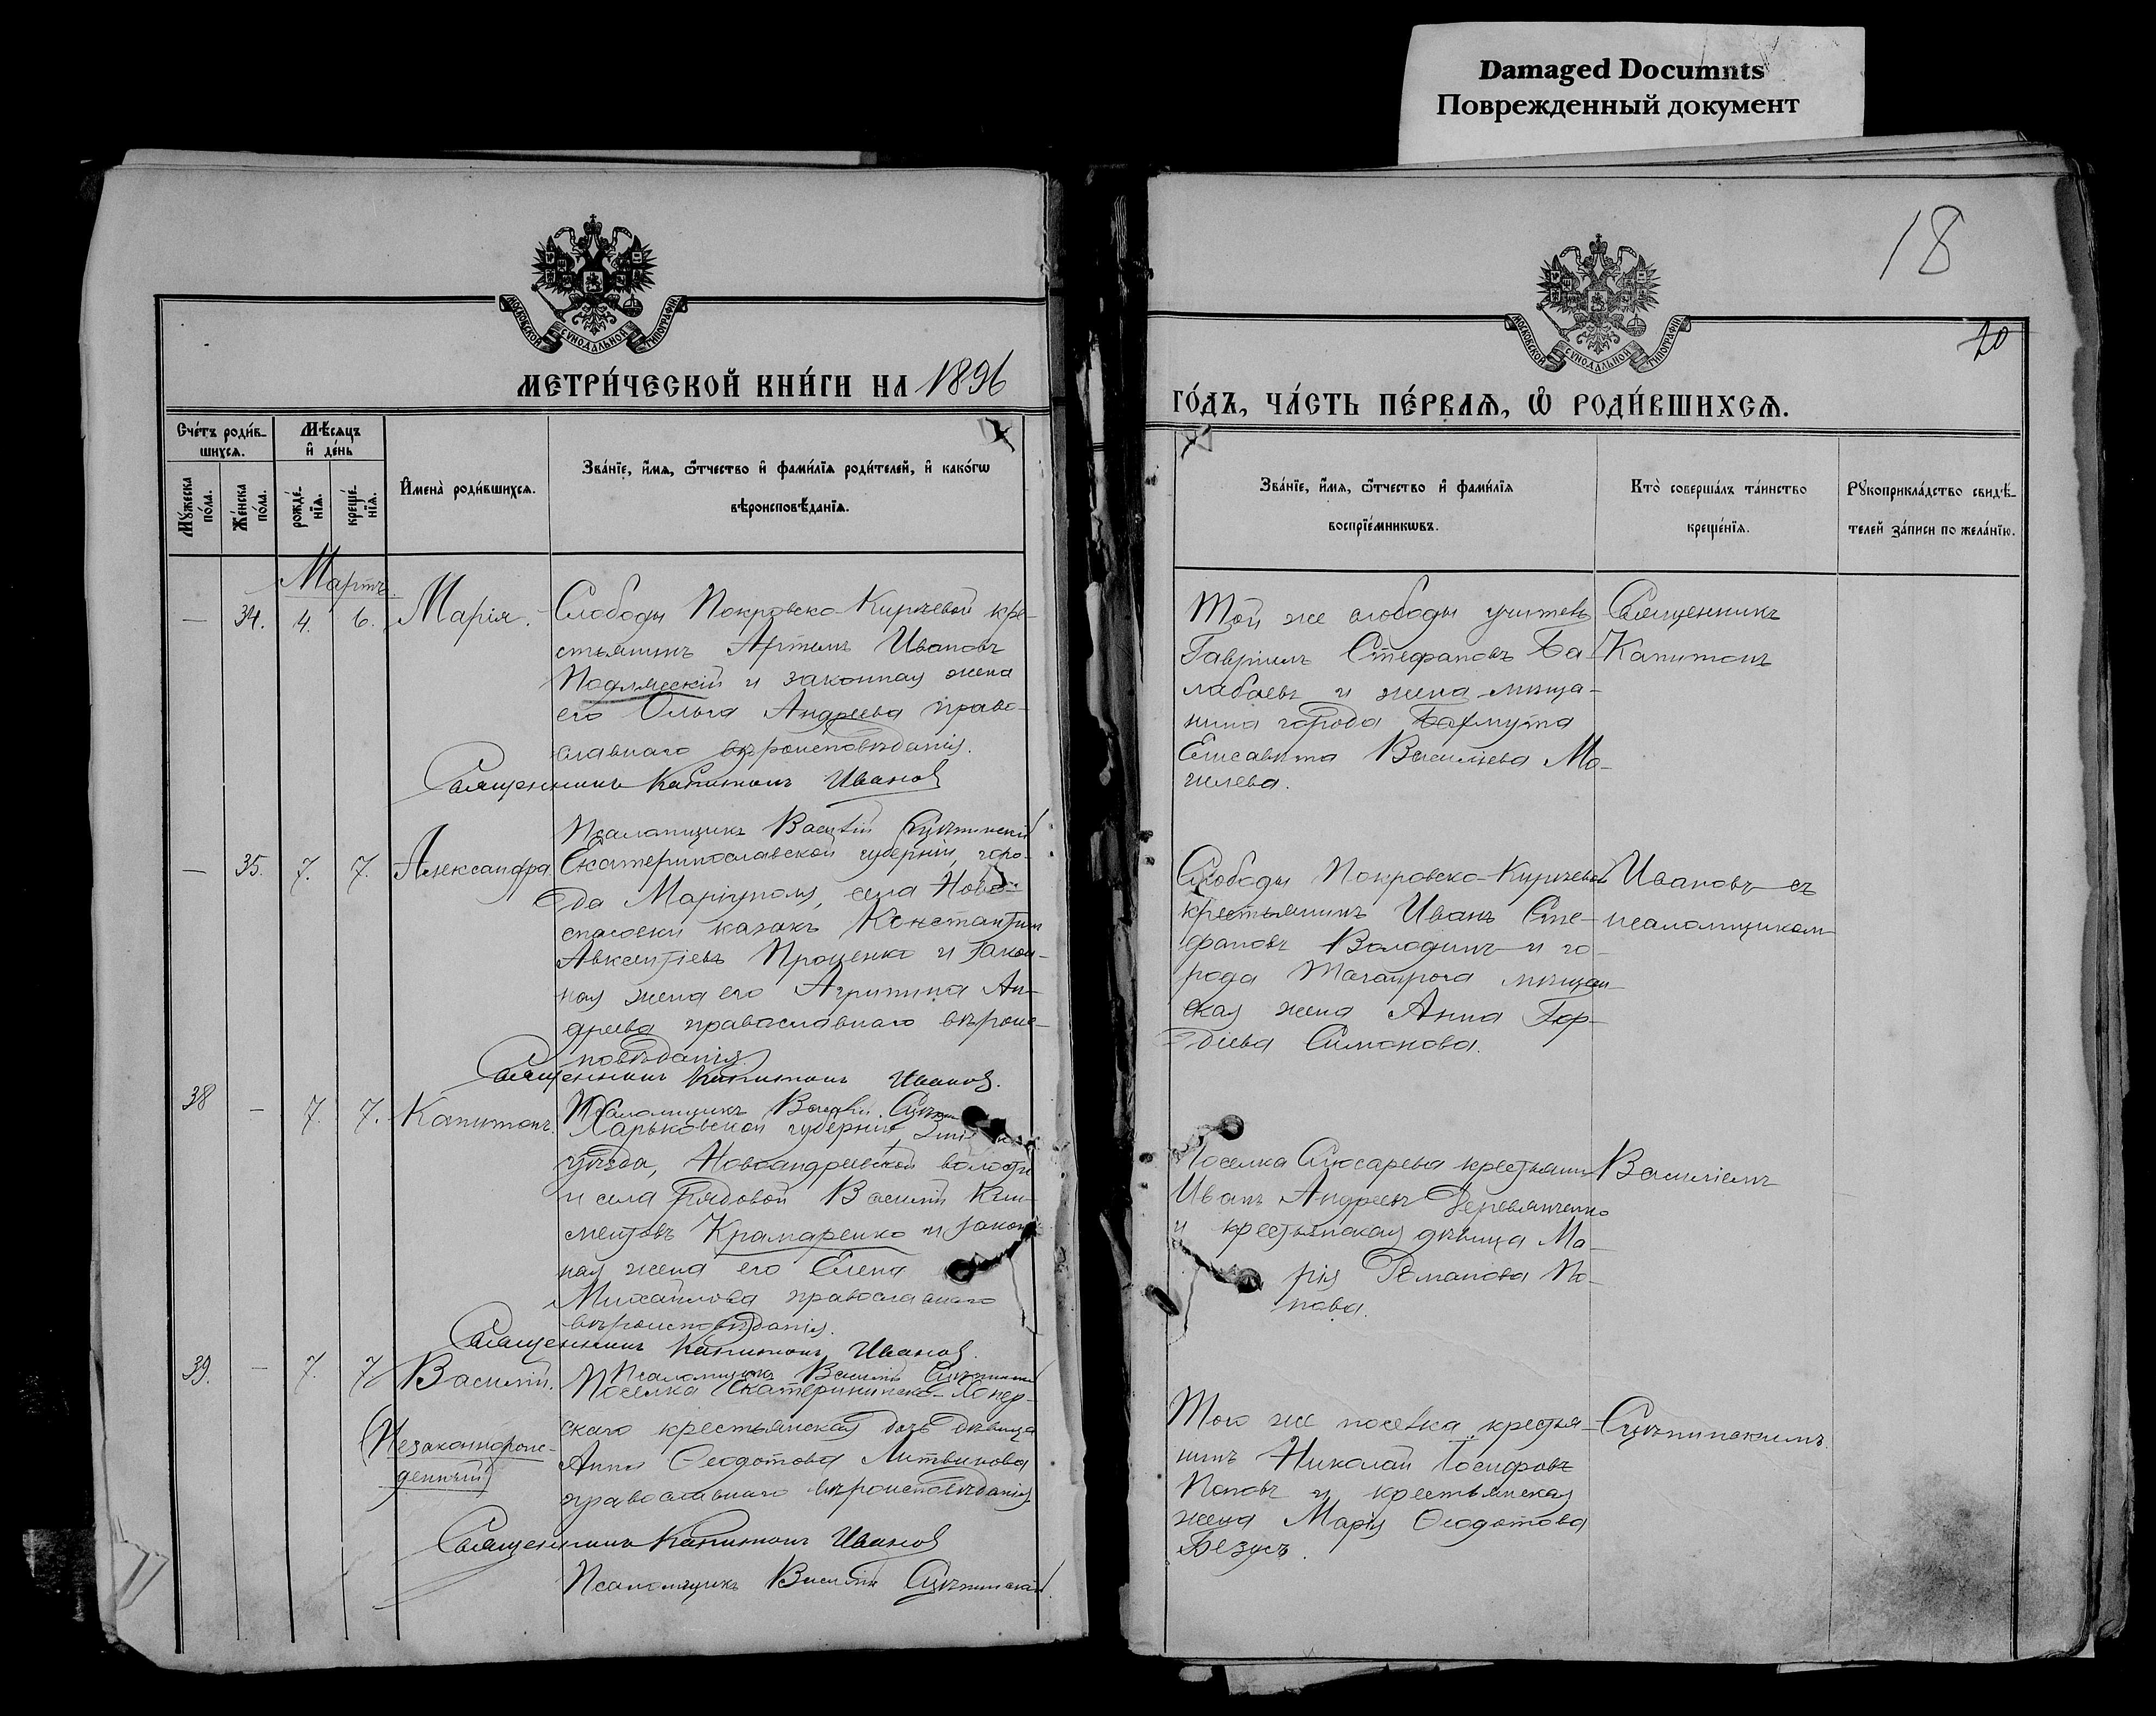 Damaged Documnts
Поврежденный документ
18
20
МОСКОВСКОЙ СѴНОДАЛЬНОЙ ТИПОГРАФІИ
МОСКОВСКОЙ СѴНОДАЛЬНОЙ ТИПОГРАФІИ
МЕТРИ́ЧЕСКОЙ КНИ́ГИ НА 1896
ГО́ДЪ, ЧА́СТЬ ПЕ́РВАЯ, Ѿ РОДИ́ВШИХСЯ.
Сче́тъ роди́в-
шихся.
Мѣ́сяцъ
и҆ де́нь
Му́жеска по́ла.
Же́нска по́ла.
рожде́-
нїя.
креще́-
нїя.
И҆мена̀ роди́вшихся.
Зва́нїе, и҆́мя, ѻ҆́тчество и҆ фами́лїя роди́телей, и҆ како́гѡ
вѣроисповѣ́данїя.
Зва́нїе, и҆́мя, ѻ҆́тчество и҆ фами́лїя
воспрїе́мникѡвъ.
Кто̀ соверша́лъ та́инство
креще́нїя.
Рꙋкоприкла́дство свидѣ́-
телей за́писи по жела́нїю.
Мартъ.
— 34. 4. 6. Марія.
Слободы Покровско-Киреевой кре-
стьянинъ Артемъ Ивановъ
и законная жена
его Ольга Андреева право-
славнаго вѣроисповѣданія.
Священникъ Капитонъ Иванов
Псаломщикъ Василій
Той же слободы учитель
Гавріилъ Стефановъ Ба-
лабаевъ и жена мѣща-
нина города Бахмута
Елисавета Васильева Мо-
гилева.
Священникъ
Капитонъ
— 35. 7. 7. Александра
Екатеринославской губерніи, горо-
да Маріуполя, села Ново-
спасовки казакъ Константинъ
Авксентіевъ Проценко и закон-
ная жена его Агрипина Ан-
дреева православнаго вѣроис-
повѣданія.
Священникъ Капитонъ Иванов.
Псаломщикъ Василій
Слободы Покровско-Киреевой
крестьянинъ Иванъ Сте-
фановъ Володинъ и го-
рода Таганрога мѣщан-
ская жена Анна Гор-
діева Симонова.
Ивановъ съ
псаломщикомъ
38 — 7. 7. Капитонъ.
Харьковской губерніи,
уѣзда, Новоандреевской волости
и села рядовой Василій Кли-
ментовъ Крамаренко и закон-
ная жена его Елена
Михайлова православнаго
вѣроисповѣданія.
Священникъ Капитонъ Иванов.
Псаломщикъ Василій
Поселка Слюсарева крестьянинъ
Иванъ Андреевъ Деревянченко
и крестьянская дѣвица Ма-
рія Романова По-
пова.
Василіемъ
39. — 7. 7. Василій.
(Незаконнорож-
денный)
Поселка Екатерининско-Хопер-
скаго крестьянская дочь дѣвица
Анна Ѳеодотова Литвинова
православнаго вѣроисповѣданія.
Священникъ Капитонъ Иванов
Псаломщикъ Василій
Того же поселка крестья-
нинъ Николай Іосифовъ
Поповъ и крестьянская
жена Марія Ѳеодотова
Безусъ.